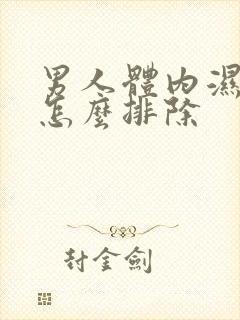 男人體內濕
怎麼排除
封金劍